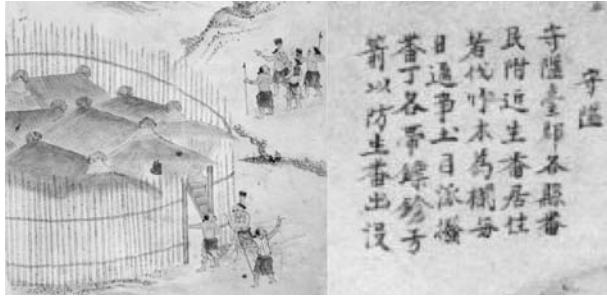 守隘
守隘臺郡各縣番
民附近生番居住
者伐竹木為柵每
日通事土目派撥
番丁各帶鏢鎗弓
箭以防生番出沒